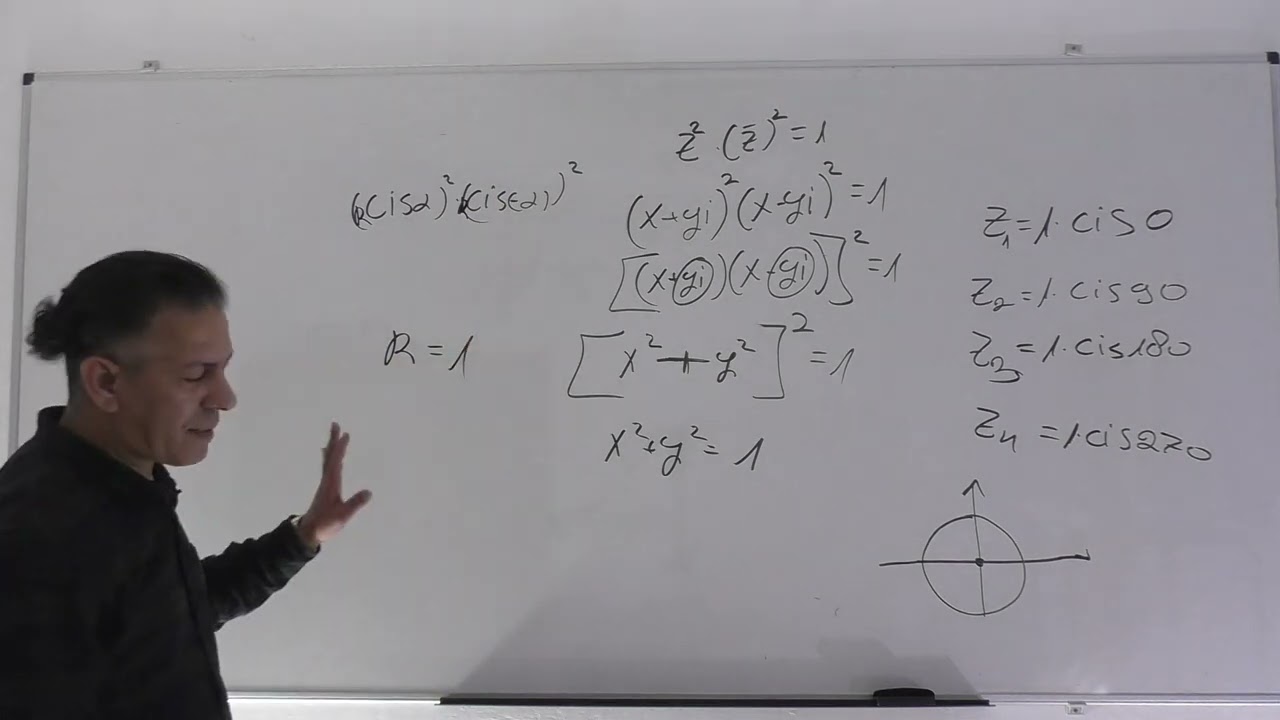 z²·(z̄)²=1
(Rcisα)²·(Rcis(-α))²
(x+yi)²(x-yi)²=1
[(x+yi)(x-yi)]²=1
R=1
[x²+y²]²=1
x²+y²=1
Z₁=1·cis0
Z₂=1·cis90
Z₃=1·cis180
Z₄=1·cis270